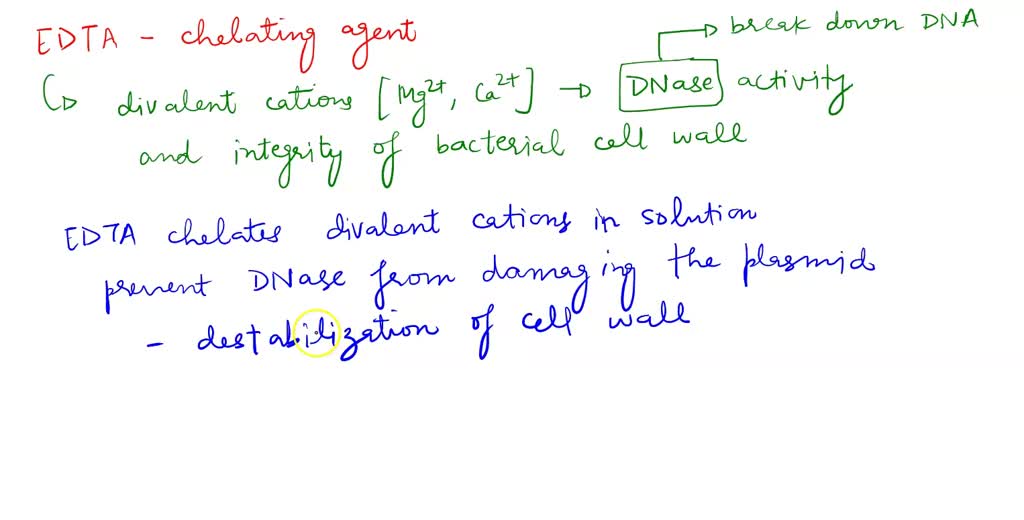 EDTA - chelating agent
break down DNA
divalent cations [Mg2+, Ca2+] → DNase activity
and integrity of bacterial cell wall
EDTA chelates divalent cations in solution
prevent DNase from damaging the plasmid
- destabilization of cell wall